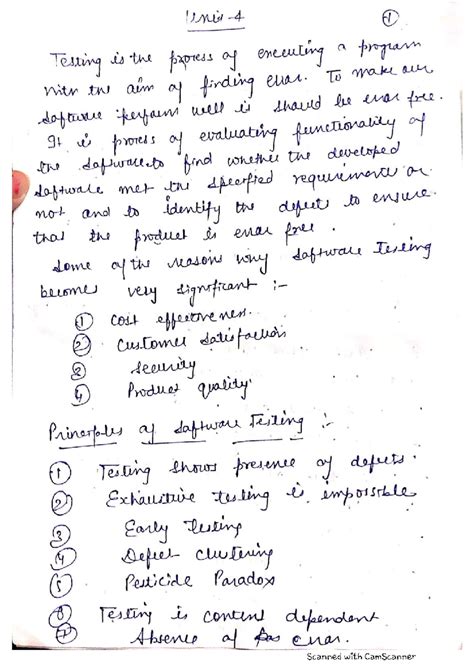 Unit-4
①
Testing is the process of executing a program
with the aim of finding error. To make our
software perform well it should be error free.
It is process of evaluating functionality of
the software to find whether the developed
software met the specified requirement or
not and to identify the defect to ensure
that the product is error free.
Some of the reasons why software Testing
becomes very significant :-
① Cost effectiveness.
② Customer Satisfaction
③ Security
④ Product quality.
Principles of Software Testing :-
① Testing shows presence of defects.
② Exhaustive testing is impossible
③ Early Testing
④ Defect clustering
⑤ Pesticide Paradox
⑥ Testing is content dependent
⑦ Absence of error.
Scanned with CamScanner